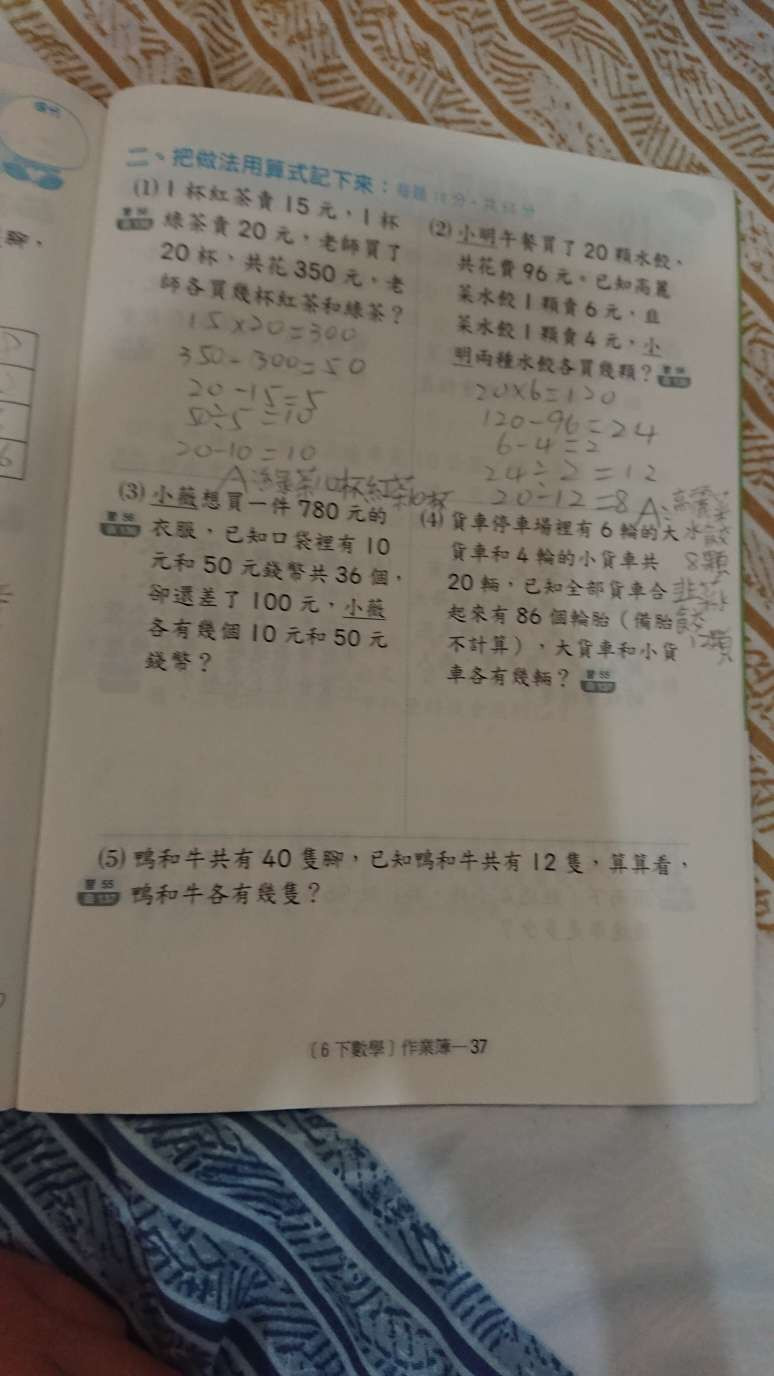 二、把做法用算式記下來：
(1) 1 杯紅茶賣 15 元，1 杯
綠茶賣 20 元，老師買了
20 杯，共花 350 元，老
師各買幾杯紅茶和綠茶？
15×20=300
350-300=50
20-15=5
50÷5=10
20-10=10
A：綠茶10杯紅茶10杯
(2) 小明午餐買了 20 顆水餃，
共花費 96 元。已知高麗
菜水餃 1 顆賣 6 元，韭
菜水餃 1 顆賣 4 元，小
明兩種水餃各買幾顆？
20×6=120
120-96=24
6-4=2
24÷2=12
20-12=8
A：高麗菜
水餃
8顆
韭菜水
餃
12顆
(3) 小薇想買一件 780 元的
習 56
衣服，已知口袋裡有 10
元和 50 元錢幣共 36 個，
卻還差了 100 元，小薇
各有幾個 10 元和 50 元
錢幣？
(4) 貨車停車場裡有 6 輪的大
貨車和 4 輪的小貨車共
20 輛，已知全部貨車合
起來有 86 個輪胎（備胎
不計算），大貨車和小貨
車各有幾輛？ 習 55
(5) 鴨和牛共有 40 隻腳，已知鴨和牛共有 12 隻，算算看，
習 55
鴨和牛各有幾隻？
〔6 下數學〕作業簿—37
腳，